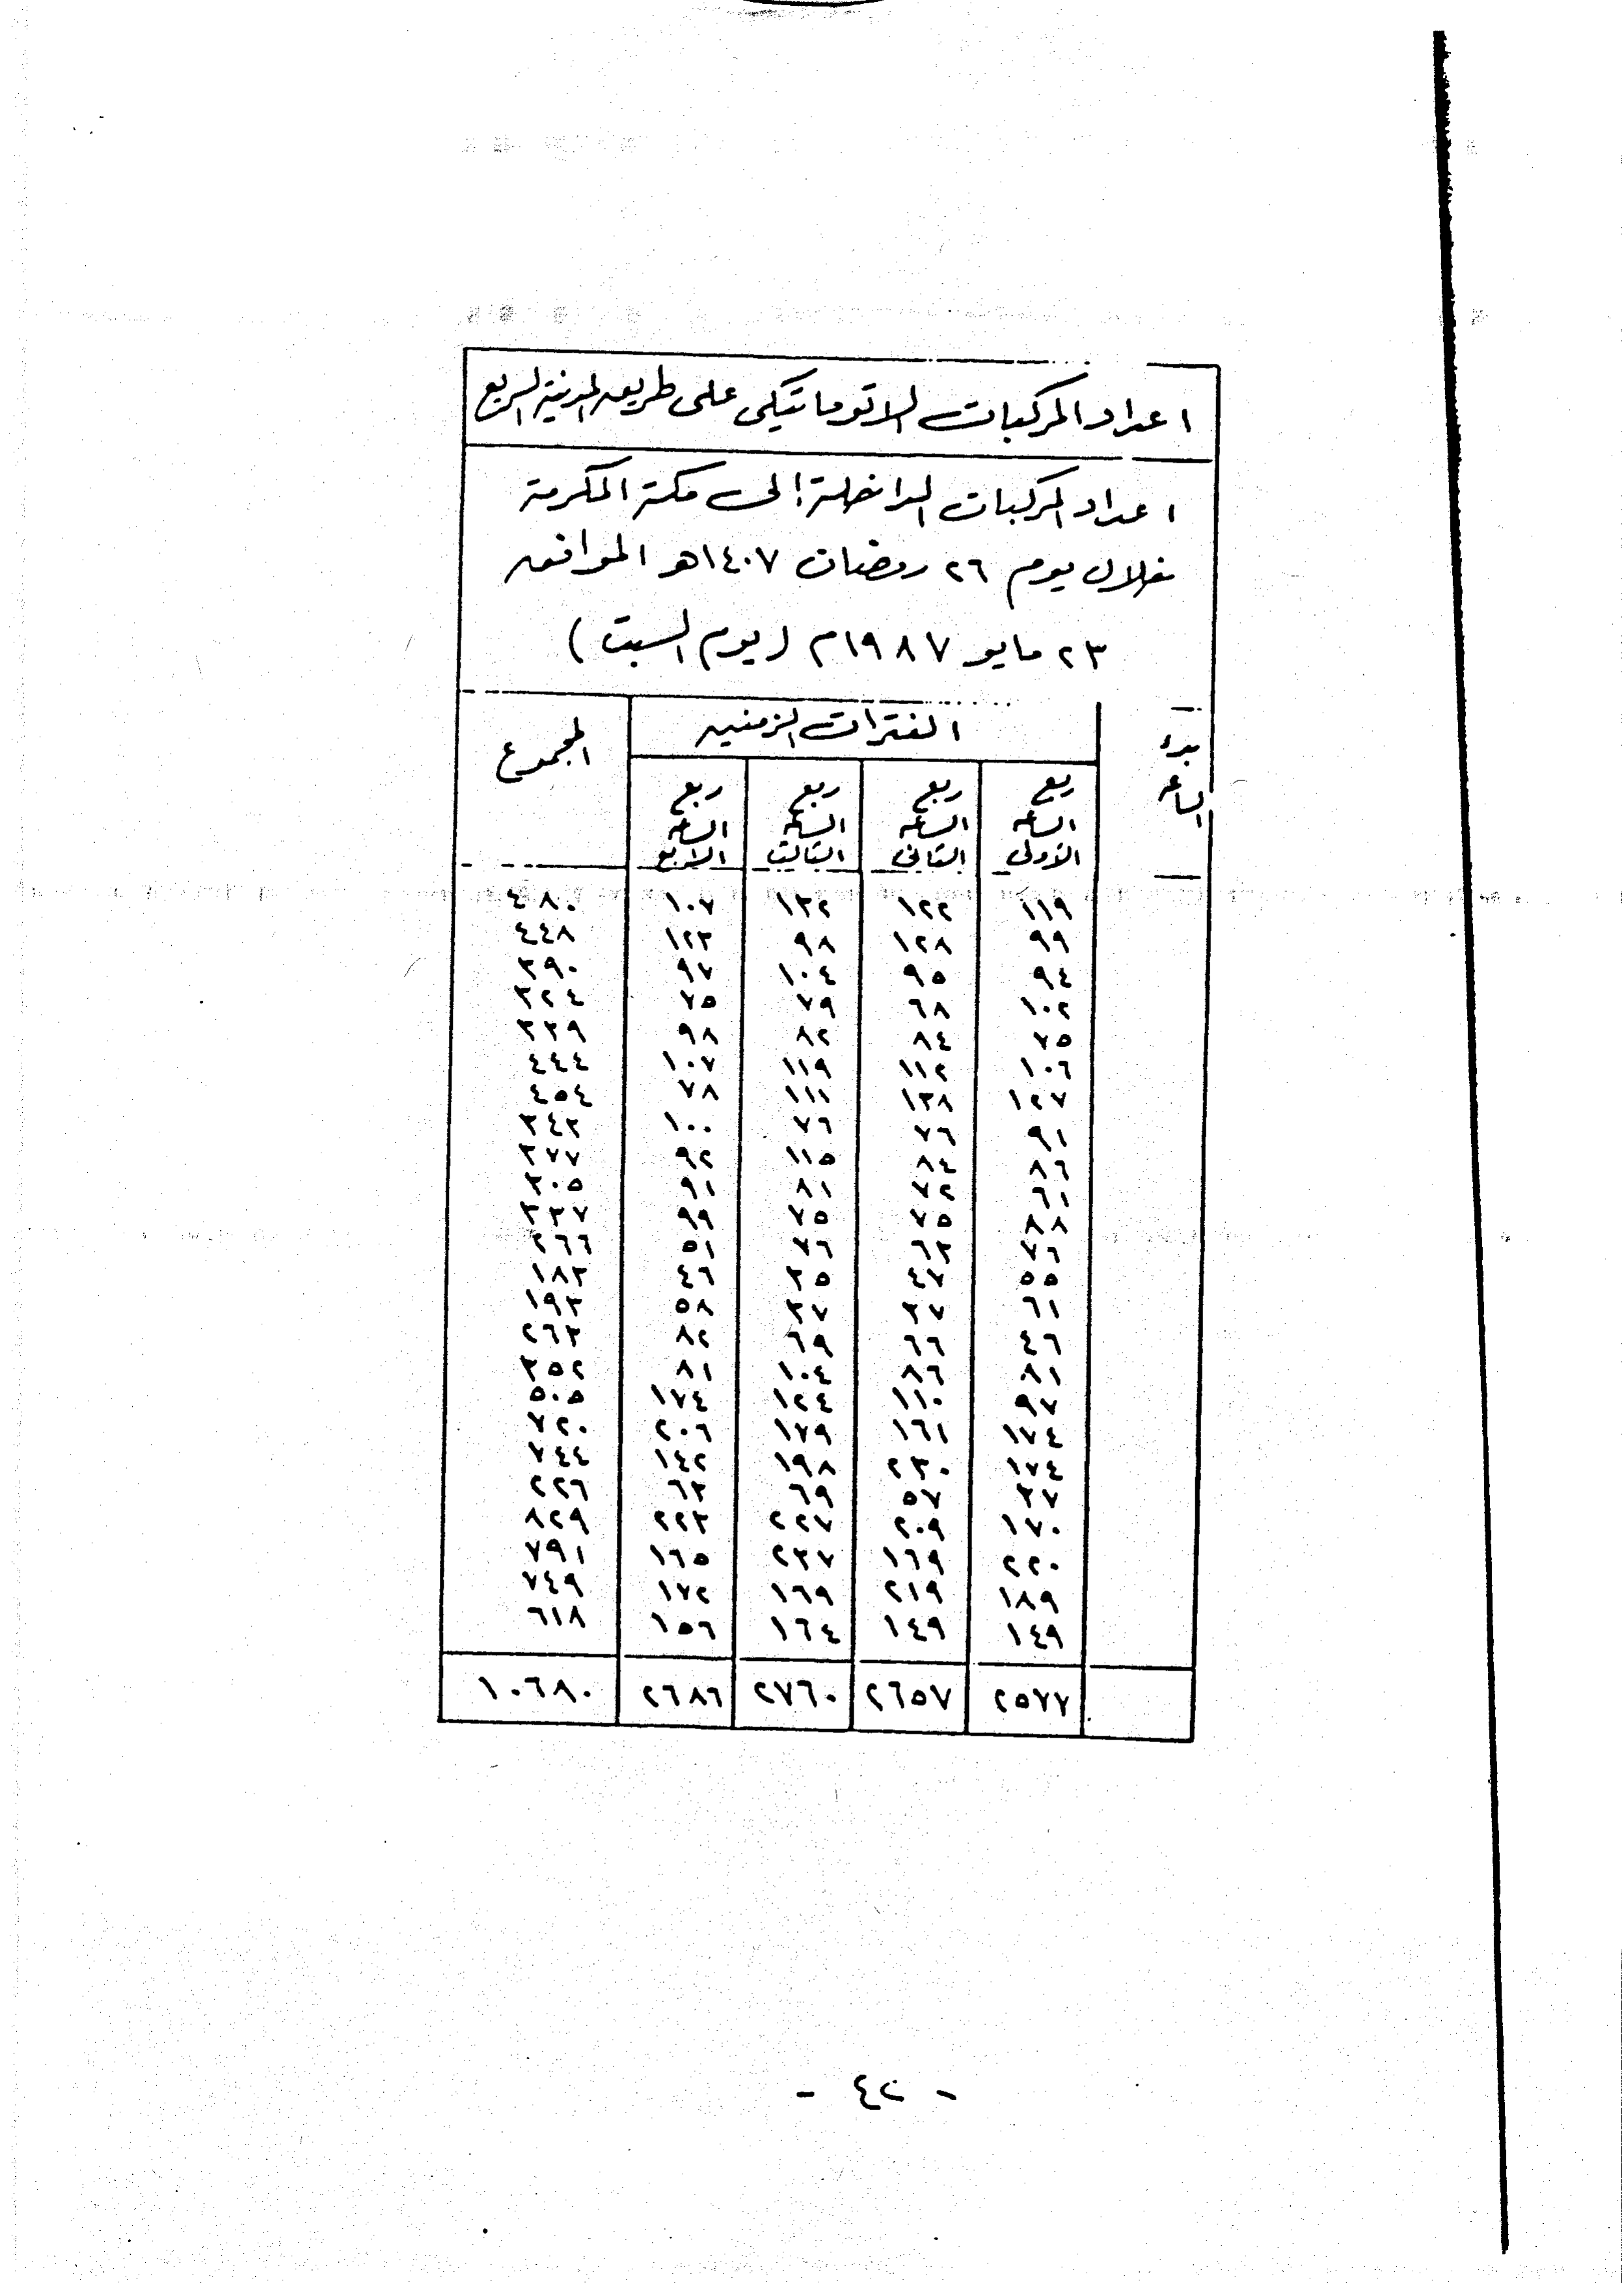 اعداد المركبات الاتوماتيكى على طريق المدينة السريع
اعداد المركبات الداخلة إلى مكة المكرمة
خلال يوم ٢٦ رمضان ١٤٠٧هـ الموافق
٢٣ مايو ١٩٨٧م (يوم السبت)
بدء الفترات الزمنيه المجموع
الساعه
ربع ربع ربع ربع
الساعه الساعه الساعه الساعه
الأولى الثانى الثالث الرابع
١١٩ ١٢٢ ١٣٢ ١٠٧ ٤٨٠
٩٩ ١٢٨ ٩٨ ١٢٣ ٤٤٨
٩٤ ٩٥ ١٠٤ ٩٧ ٣٩٠
١٠٢ ٦٨ ٧٩ ٧٥ ٣٢٤
٧٥ ٨٤ ٨٢ ٩٨ ٣٣٩
١٠٦ ١١٢ ١١٩ ١٠٧ ٤٤٤
١٢٧ ١٣٨ ١١١ ٧٨ ٤٥٤
٩١ ٧٦ ٧٦ ١٠٠ ٣٤٣
٨٦ ٨٤ ١١٥ ٩٢ ٣٧٧
٦١ ٧٢ ٨١ ٩١ ٣٠٥
٨٨ ٧٥ ٧٥ ٩٩ ٣٣٧
٧٦ ٦٣ ٧٦ ٥١ ٢٦٦
٥٥ ٤٧ ٣٥ ٤٦ ١٨٣
٦١ ٣٧ ٣٧ ٥٨ ١٩٣
٤٦ ٦٦ ٦٩ ٨٢ ٢٦٣
٨١ ٨٦ ١٠٤ ٨١ ٣٥٢
٩٧ ١١٠ ١٢٤ ١٧٤ ٥٠٥
١٧٤ ١٦١ ١٧٩ ٢٠٦ ٧٢٠
١٧٤ ٢٣٠ ١٩٨ ١٤٢ ٧٤٤
٣٧ ٥٧ ٦٩ ٦٣ ٢٢٦
١٧٠ ٢٠٩ ٢٢٧ ٢٢٣ ٨٢٩
٢٢٠ ١٦٩ ٢٣٧ ١٦٥ ٧٩١
١٨٩ ٢١٩ ١٦٩ ١٧٢ ٧٤٩
١٤٩ ١٤٩ ١٦٤ ١٥٦ ٦١٨
٢٥٧٧ ٢٦٥٧ ٢٧٦٠ ٢٦٨٦ ١٠٦٨٠
- ٤٢ -